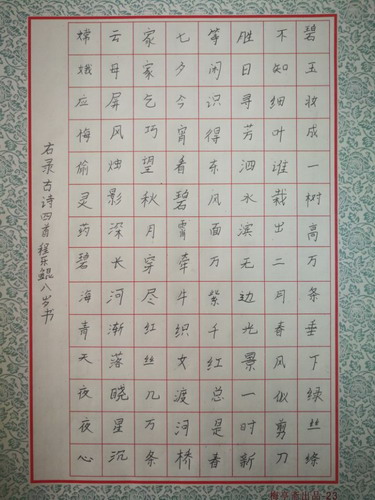 碧玉妆成一树高万条垂下绿丝绦
不知细叶谁栽出二月春风似剪刀
胜日寻芳泗水滨无边光景一时新
等闲识得东风面万紫千红总是春
七夕今宵看碧霄牵牛织女渡河桥
家家乞巧望秋月穿尽红丝几万条
云母屏风烛影深长河渐落晓星沉
嫦娥应悔偷灵药碧海青天夜夜心
右录古诗四首程东鲲八岁书
出品-23